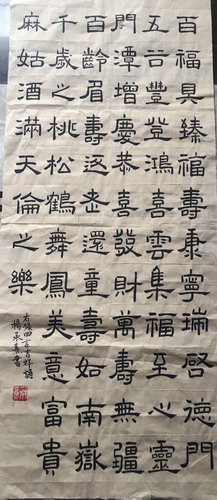 百福具臻福壽康寧瑞啓德門
五谷豐登鴻喜雲集福至心靈
門潭增慶恭喜發財萬壽無疆
百齡眉壽返老還童壽如南嶽
千歲之桃松鶴舞鳳美意富貴
麻姑酒滿天倫之樂
右錄四言吉祥語
楊承書